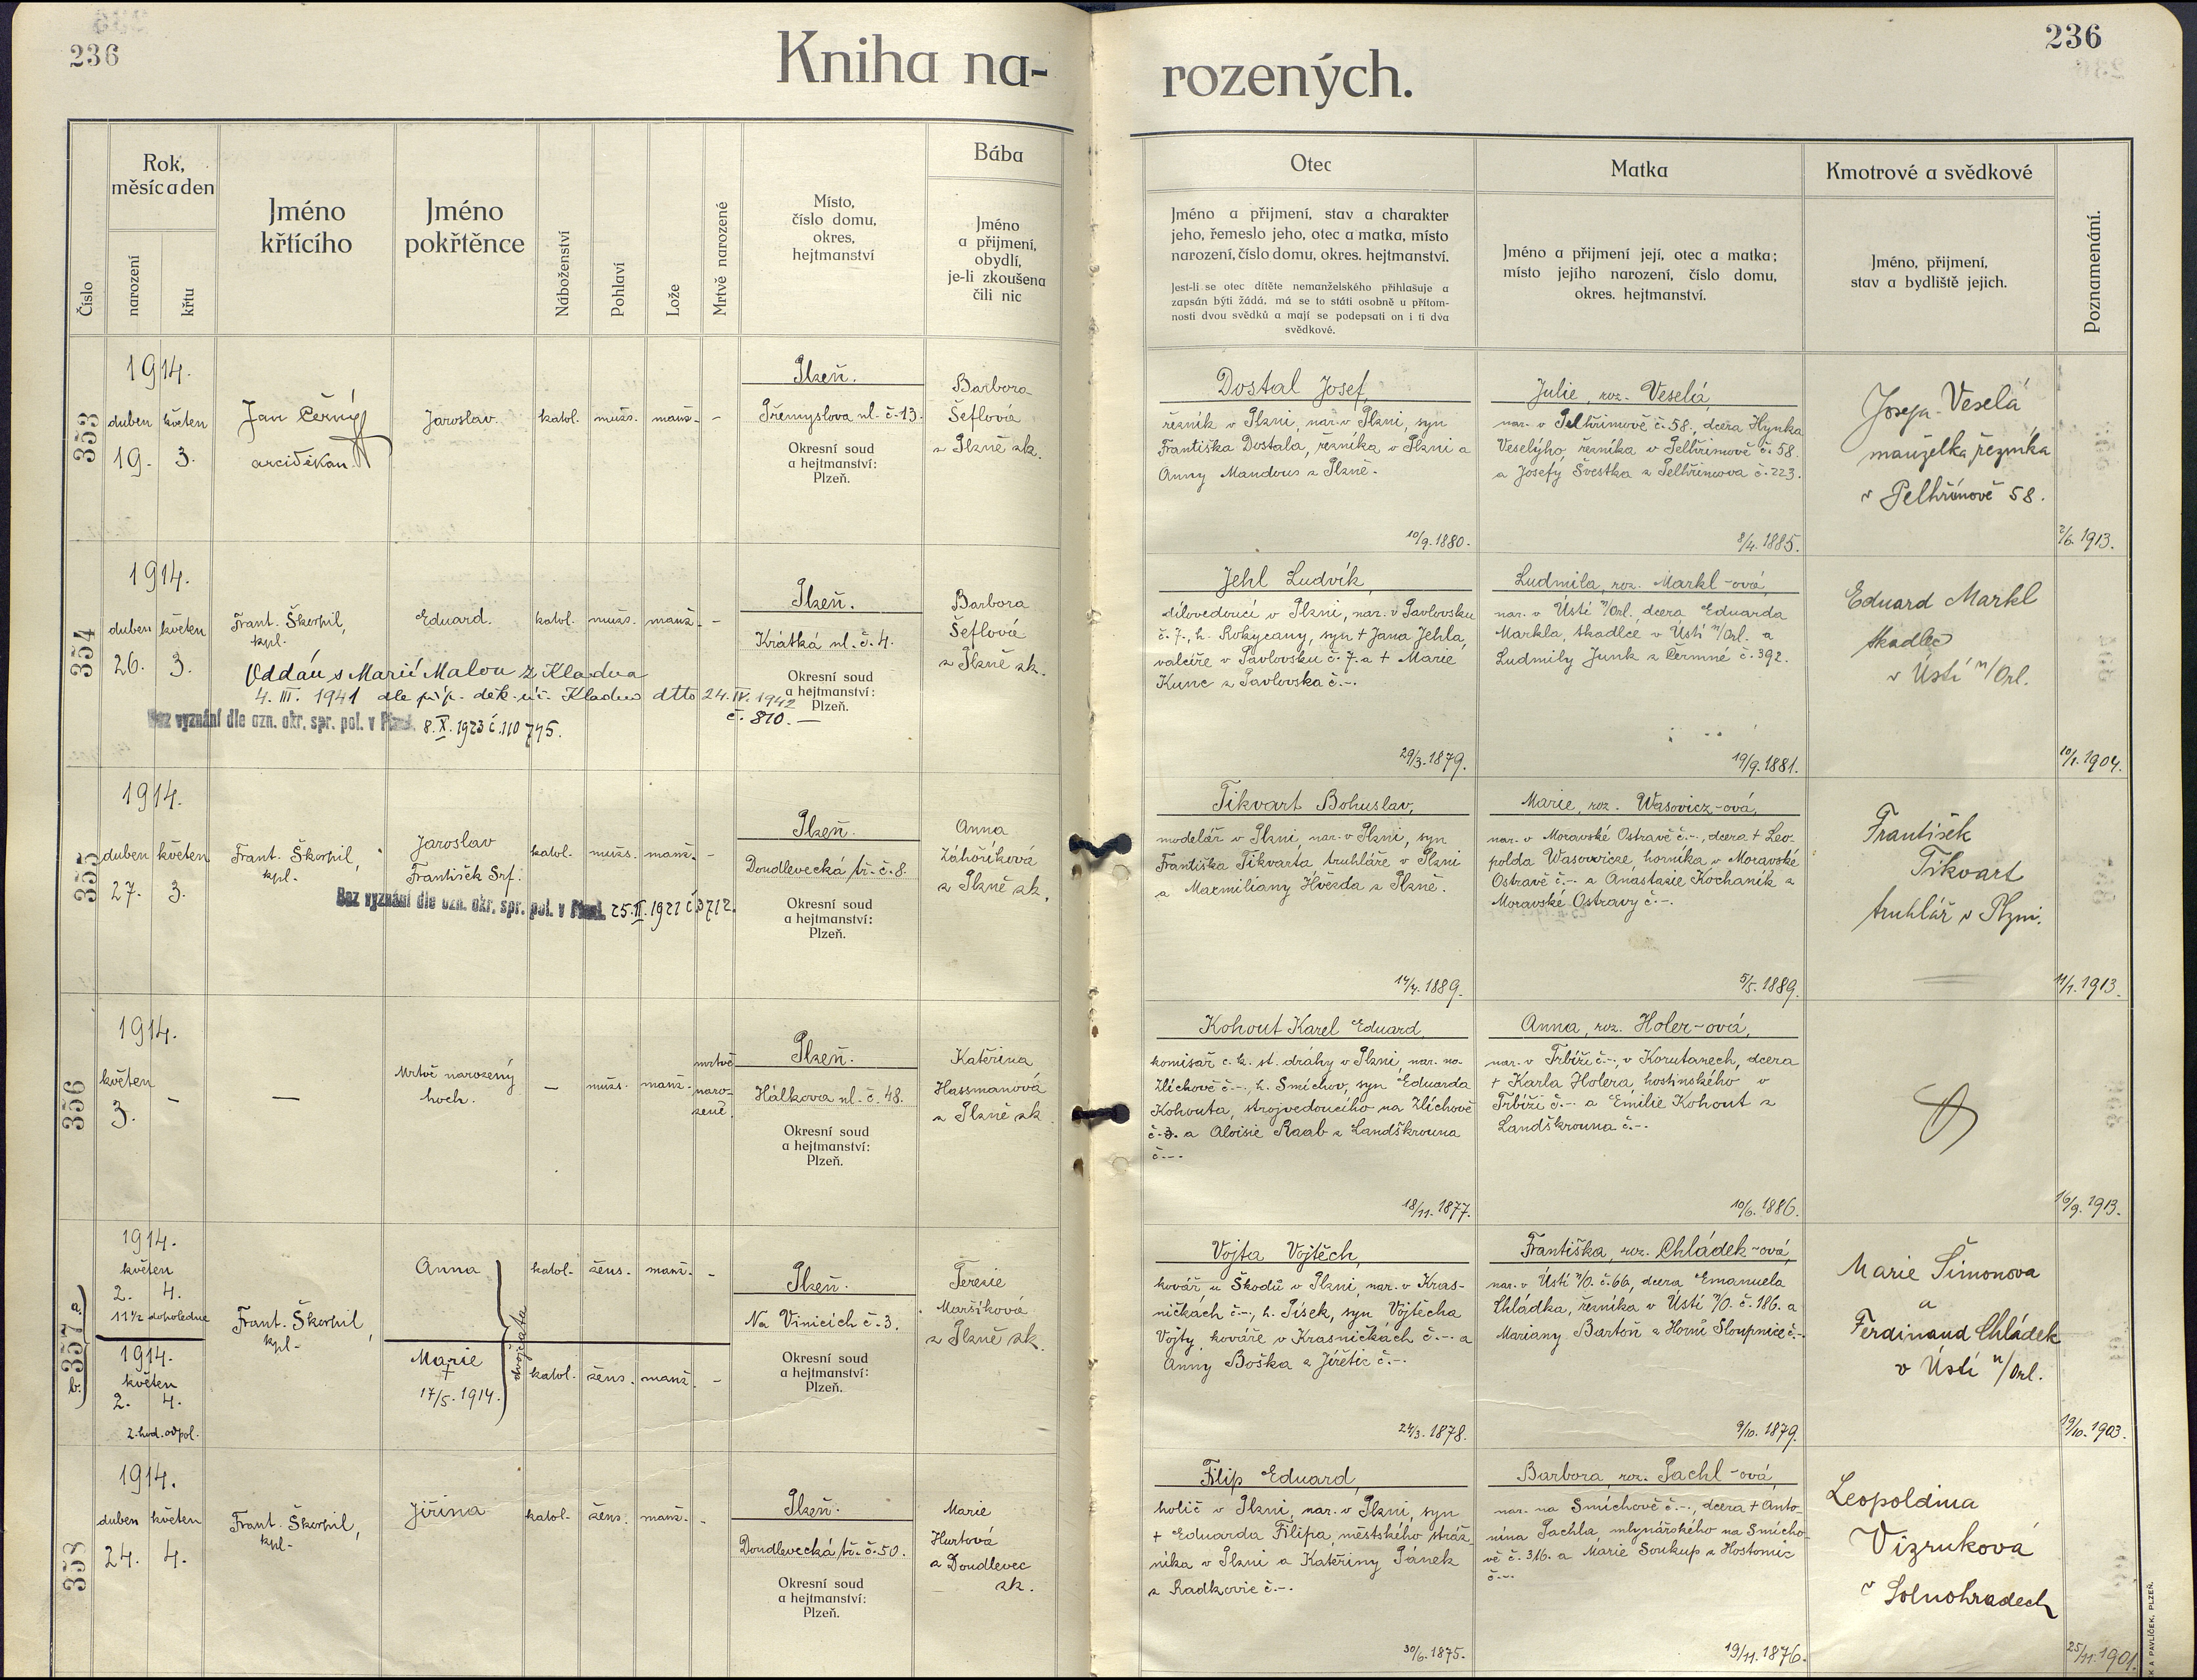 236
Kniha na-
rozených.
236
Číslo
Rok,
měsíc a den
narození
křtu
Jméno
křtícího
Jméno
pokřtěnce
Náboženství
Pohlaví
Lože
Mrtvě narozené
Místo,
číslo domu,
okres,
hejtmanství
Bába
Jméno
a přijmení,
obydlí,
je-li zkoušena
čili nic
Otec
Jméno a přijmení, stav a charakter
jeho, řemeslo jeho, otec a matka, místo
narození, číslo domu, okres. hejtmanství.
Jest-li se otec dítěte nemanželského přihlašuje a
zapsán býti žádá, má se to státi osobně u přítom-
nosti dvou svědků a mají se podepsati on i ti dva
svědkové.
Matka
Jméno a přijmení její, otec a matka;
místo jejího narození, číslo domu,
okres. hejtmanství.
Kmotrové a svědkové
Jméno, přijmení,
stav a bydliště jejich.
Poznamenání.
353
1914.
duben květen
19. 3.
Jan Černý
arciděkan
Jaroslav.
katol.
mužs.
manž.
-
Plzeň.
Přemyslova ul. č. 13.
Okresní soud
a hejtmanství:
Plzeň.
Barbora
Šeflová
z Plzně zk.
Dostal Josef,
řezník v Plzni, nar. v Plzni, syn
Františka Dostala, řezníka v Plzni a
Anny Mandous z Plzně.
10/9. 1880.
Julie, roz. Veselá,
nar. v Pelhřimově č. 58., dcera Hynka
Veselýho, řezníka v Pelhřimově č. 58.
a Josefy Švestka z Pelhřimova č. 223.
8/4. 1885.
Josefa Veselá
manželka řezníka
v Pelhřimově 58.
2/6. 1913.
354
1914.
duben květen
26. 3.
Frant. Škorpil,
kpl.
Eduard.
katol.
mužs.
manž.
-
Oddán s Marií Malou z Kladna
4. III. 1941 dle příp. děk. úř. Kladno dtto 24. IV. 1942
č. 810. —
Bez vyznání dle ozn. okr. spr. pol. v Plzni. 8. X. 1923 č. 110745.
Plzeň.
Krátká ul. č. 4.
Okresní soud
a hejtmanství:
Plzeň.
Barbora
Šeflová
z Plzně zk.
Jehl Ludvík,
dílovedoucí v Plzni, nar. v Pavlovsku
č. 7., h. Rokycany, syn + Jana Jehla,
valcíře v Pavlovsku č. 7. a + Marie
Kunc z Pavlovska č.-.
29/3. 1879.
Ludmila, roz. Markl-ová,
nar. v Ústí n/Orl., dcera Eduarda
Markla, tkadlce v Ústí n/Orl. a
Ludmily Junk z Čermné č. 392.
19/9. 1881.
Eduard Markl
tkadlec
v Ústí n/Orl.
10/1. 1904.
355
1914.
duben květen
27. 3.
Frant. Škorpil,
kpl.
Jaroslav
František Srf.
katol.
mužs.
manž.
-
Bez vyznání dle ozn. okr. spr. pol. v Plzni. 25. II. 1921 č. 3712.
Plzeň.
Doudlevecká tř. č. 8.
Okresní soud
a hejtmanství:
Plzeň.
Anna
Záhoříková
z Plzně zk.
Tikvart Bohuslav,
modelář v Plzni, nar. v Plzni, syn
Františka Tikvarta truhláře v Plzni
a Maxmiliany Hvězda z Plzně.
14/4. 1889.
Marie, roz. Wasovicz-ová,
nar. v Moravské Ostravě č.-., dcera + Leo-
polda Wasowicze, horníka v Moravské
Ostravě č.-. a Anastasie Kochanik z
Moravské Ostravy č.-.
5/5. 1889.
František
Tikvart
truhlář v Plzni.
11/1. 1913.
356
1914.
květen
3. -
—
Mrtvě narozený
hoch.
—
mužs.
manž.
mrtvě
naro-
zené.
Plzeň.
Hálkova ul. č. 48.
Okresní soud
a hejtmanství:
Plzeň.
Kateřina
Hassmanová
z Plzně zk.
Kohout Karel Eduard,
komisař c. k. st. dráhy v Plzni, nar. na
Zlíchově č.-., h. Smíchov, syn Eduarda
Kohouta, strojvedoucího na Zlíchově
č. 3. a Aloisie Raab z Landškrouna
č.-.
18/11. 1877.
Anna, roz. Holer-ová,
nar. v Trbíži č.-., v Korutanech, dcera
+ Karla Holera, hostinského v
Trbíži č.-. a Emilie Kohout z
Landškrouna č.-.
10/6. 1886.
16/9. 1913.
357 a.
b.
1914.
květen
2. 4.
11 1/2 dopoledne
1914.
květen
2. 4.
2. hod. odpol.
Frant. Škorpil,
kpl.
Anna
Marie
†
17/5. 1914.
dvojčata
katol.
žens.
manž.
-
katol.
žens.
manž.
-
Plzeň.
Na Vinicích č. 3.
Okresní soud
a hejtmanství:
Plzeň.
Terezie
Maršíková
z Plzně zk.
Vojta Vojtěch,
kovář u Škodů v Plzni, nar. v Kras-
ničkách č.-., h. Písek, syn Vojtěcha
Vojty, kováře v Krasničkách č.-. a
Anny Boška z Jiřetic č.-.
24/3. 1878.
Františka, roz. Chládek-ová,
nar. v Ústí n/O. č. 66, dcera Emanuela
Chládka, řezníka v Ústí n/O. č. 186. a
Mariany Bartoň z Horní Sloupnice č.-.
9/10. 1879.
Marie Šimonova
a
Ferdinand Chládek
v Ústí n/Orl.
19/10. 1903.
358
1914.
duben květen
24. 4.
Frant. Škorpil,
kpl.
Jiřina
katol.
žens.
manž.
-
Plzeň.
Doudlevecká tř. č. 50.
Okresní soud
a hejtmanství:
Plzeň.
Marie
Hurtová
z Doudlevec
zk.
Filip Eduard,
holič v Plzni, nar. v Plzni, syn
+ Eduarda Filipa, městského stráž-
níka v Plzni a Kateřiny Pánek
z Radkovic č.-.
30/6. 1875.
Barbora, roz. Pachl-ová,
nar. na Smíchově č.-., dcera + Anto-
nína Pachla, mlynářského na Smícho-
vě č. 316. a Marie Soukup z Hostomic
č.-.
19/11. 1876.
Leopoldina
Vizruková
v Solnohradech
25/11. 1901.
K A PAVLÍČEK, PLZEŇ.